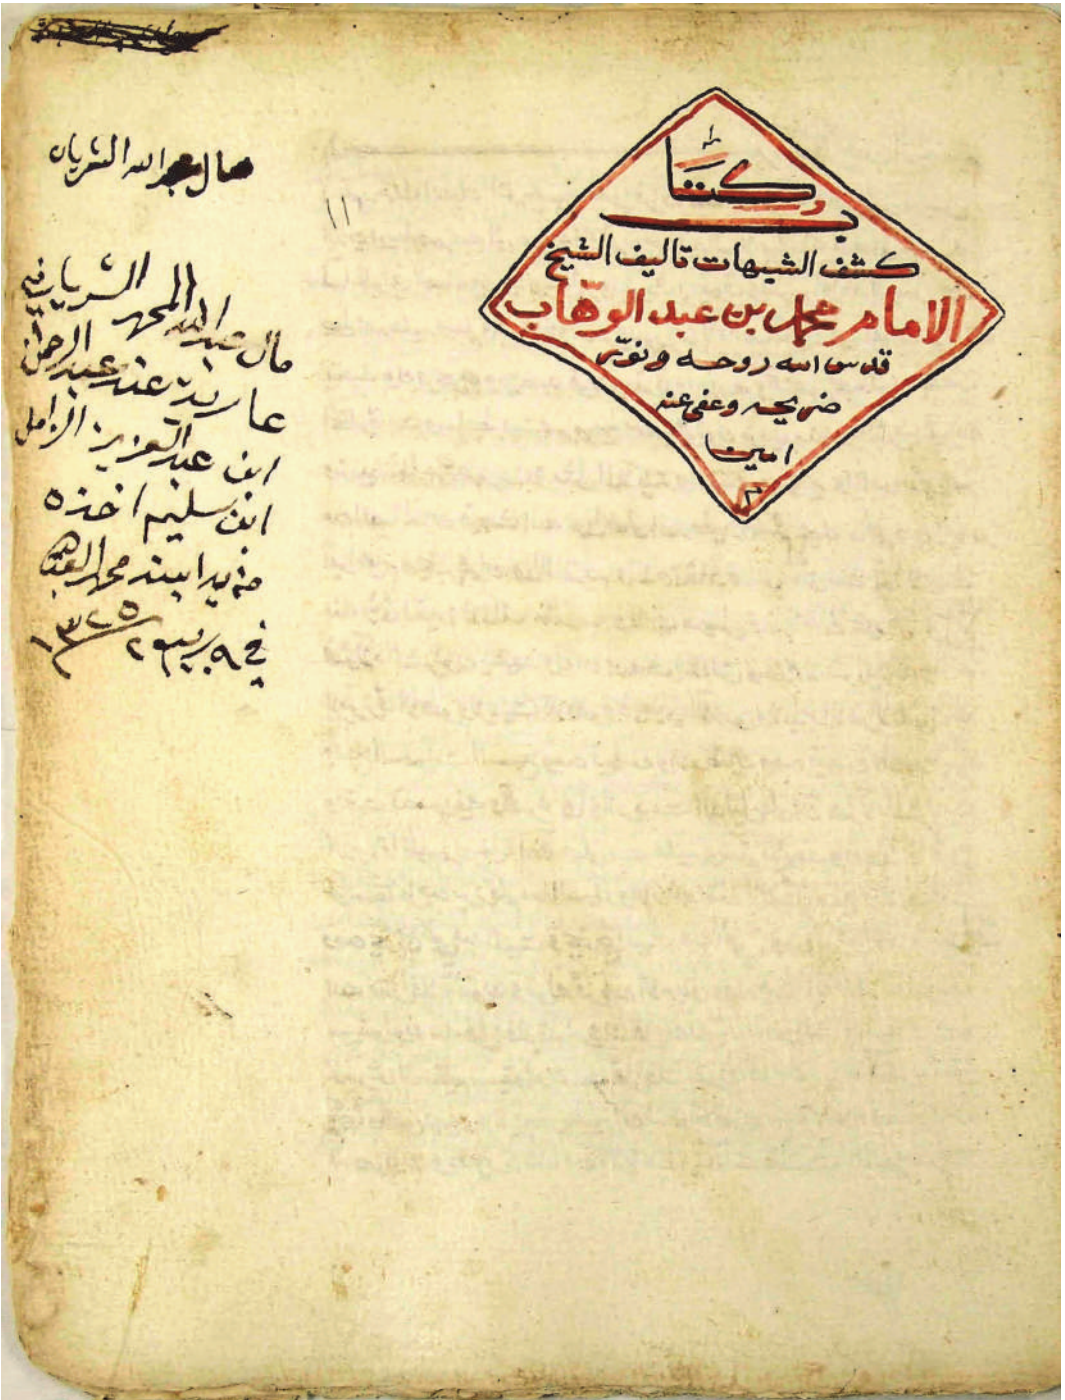 كتا
ب
كشف الشبهات تاليف الشيخ
الامام محمد بن عبد الوهاب
قدس الله روحه ونور
ضريحه وعفى عنه
امين
م
١١
مال عبد الله الشريان
مال عبد الله المحمد الشريان
عارية عند عبد الرحمن
ابن عبد العزيز الزامل
ابن سليم اخذه
من يد ابنه محمد
في ٩ ر ٢ ١٣٢٥